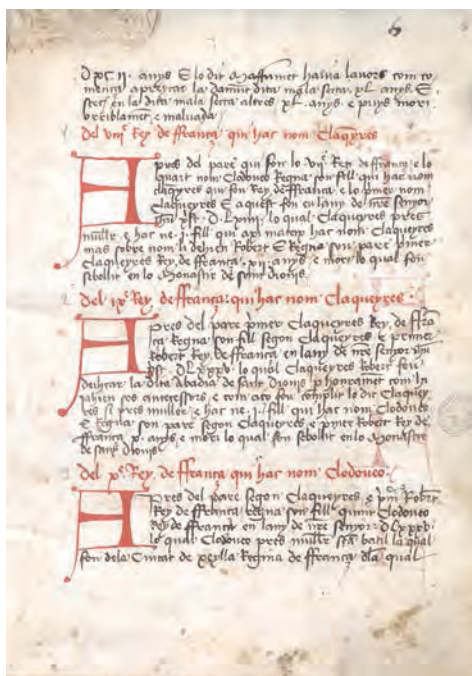 6
D xC ii. anys E lo dit Mahffumet havia lavors com co
mença a preycar la damunt dita mala secta xL anys E
stech en la dita mala secta altres xL. anys e puys mori
orriblament e malvada
Del viij Rey de ffrança qui hac nom Claqueyres
Apres del pare qui fon lo vij Rey de ffrança e lo
quart nom Clodoveo Regna son fill qui hac nom
claqeyres qui fon Rey de ffrança e lo primer nom
Claqueyres E aquest fon en lany de nre senyor
D Lxiiij lo qual Claqueyres pres
muller e hac ne .j. fill qui axi mateix hac nom Claqueyres
mas sobre nom la dehien Robert E Regna son pare primer
Claqueyres Rey de ffrança xij anys e mori lo qual fon
sebollit en lo Monastir de sant dionis
Del ix Rey de ffrança qui hac nom Claqueyres
Apres del pare primer Claqueyres Rey de ffrã
ça Regna son fill segon Claqueyres e primer
Robert Rey de ffrança en lany de nre senyor
D Lxxxv lo qual Claqueyres Robert feu
la dita Abadia de sant dionis p honrament com
ses antecessors e com aço fon complit lo dit Claquey
res si pres muller e hac ne .j. fill qui hac nom Clodoveo
E Regna son pare segon Claqueyres e primer Robert Rey de
ffrança x. anys e mori lo qual fon sebollit en lo Monastir
de sant dionis
Del x Rey de ffrança qui hac nom Clodoveo
Apres del pare segon Claqueyres e pm Robert
Rey de ffrança regna son fill quint Clodoveo
Rey de ffrança en lany de nre senyor D Lxxxv
lo qual Clodoveo pres muller sta batil la qual
fon dela Ciutat de Regina de ffrança dla qual